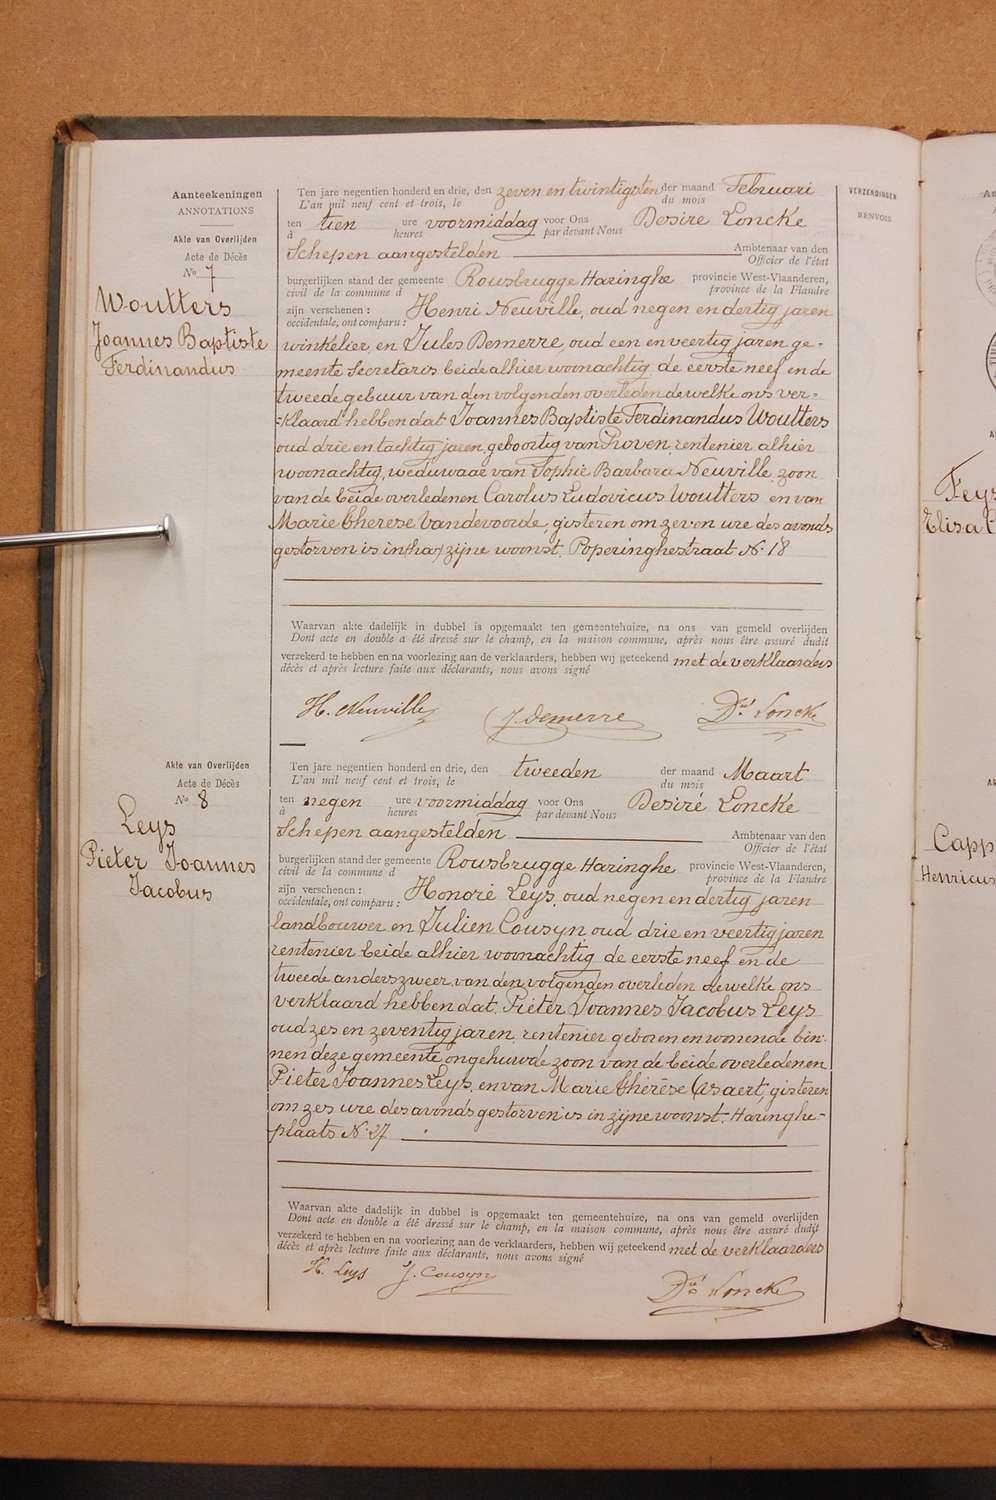 Aanteekeningen
ANNOTATIONS
Akte van Overlijden
Acte de Décès
No 7
Woutters
Joannes Baptiste
Ferdinandus
Ten jare negentien honderd en drie, den zeven en twintigsten der maand Februari
L'an mil neuf cent et trois, le du mois
ten tien ure voormiddag voor Ons Desiré Loncke
à heures par devant Nous
Schepen aangestelden Ambtenaar van den
Officier de l'état
burgerlijken stand der gemeente Rousbrugge Haringhe provincie West-Vlaanderen,
civil de la commune d province de la Flandre
zijn verschenen : Henri Neuville, oud negen en dertig jaren
occidentale, ont comparu :
winkelier, en Jules Demerre, oud een en veertig jaren ge-
meente Secretaris beide alhier woonachtig de eerste neef en de
tweede gebuur van den volgenden overleden dewelke ons ver-
-klaard hebben dat Joannes Baptiste Ferdinandus Woutters
oud drie en tachtig jaren, geboortig van Proven, rentenier alhier
woonachtig, weduwaar van Sophie Barbara Neuville, zoon
van de beide overledenen Carolus Ludovicus Woutters en van
Marie Therese Vandevoorde, gisteren om zeven ure des avonds
gestorven is in zijne woonst. Poperinghestraat No 18
Waarvan akte dadelijk in dubbel is opgemaakt ten gemeentehuize, na ons van gemeld overlijden
Dont acte en double a été dressé sur le champ, en la maison commune, après nous être assuré dudit
verzekerd te hebben en na voorlezing aan de verklaarders, hebben wij geteekend met de verklaarders
décès et après lecture faite aux déclarants, nous avons signé
H. Neuville J. Demerre Dré Loncke
Akte van Overlijden
Acte de Décès
No 8
Leys
Pieter Joannes
Jacobus
Ten jare negentien honderd en drie, den tweeden der maand Maart
L'an mil neuf cent et trois, le du mois
ten negen ure voormiddag voor Ons Desiré Loncke
à heures par devant Nous
Schepen aangestelden Ambtenaar van den
Officier de l'état
burgerlijken stand der gemeente Rousbrugge Haringhe provincie West-Vlaanderen,
civil de la commune d province de la Flandre
zijn verschenen : Honoré Leys, oud negen en dertig jaren
occidentale, ont comparu :
landbouwer en Julien Cousyn oud drie en veertig jaren
rentenier beide alhier woonachtig de eerste neef en de
tweede anderszweer van den volgenden overleden dewelke ons
verklaard hebben dat Pieter Joannes Jacobus Leys
oud zes en zeventig jaren, rentenier geboren en wonende bin-
nen deze gemeente ongehuwde zoon van de beide overledenen
Pieter Joannes Leys, en van Marie Thérèse gisteren
om zes ure des avonds gestorven is in zijne woonst. Haringhe-
plaats No 27
Waarvan akte dadelijk in dubbel is opgemaakt ten gemeentehuize, na ons van gemeld overlijden
Dont acte en double a été dressé sur le champ, en la maison commune, après nous être assuré dudit
verzekerd te hebben en na voorlezing aan de verklaarders, hebben wij geteekend met de verklaarders
décès et après lecture faite aux déclarants, nous avons signé
H. Leys J. Cousyn Dré Loncke
VERZENDINGEN
RENVOIS
Feys
Elisa
Capp
Henricus